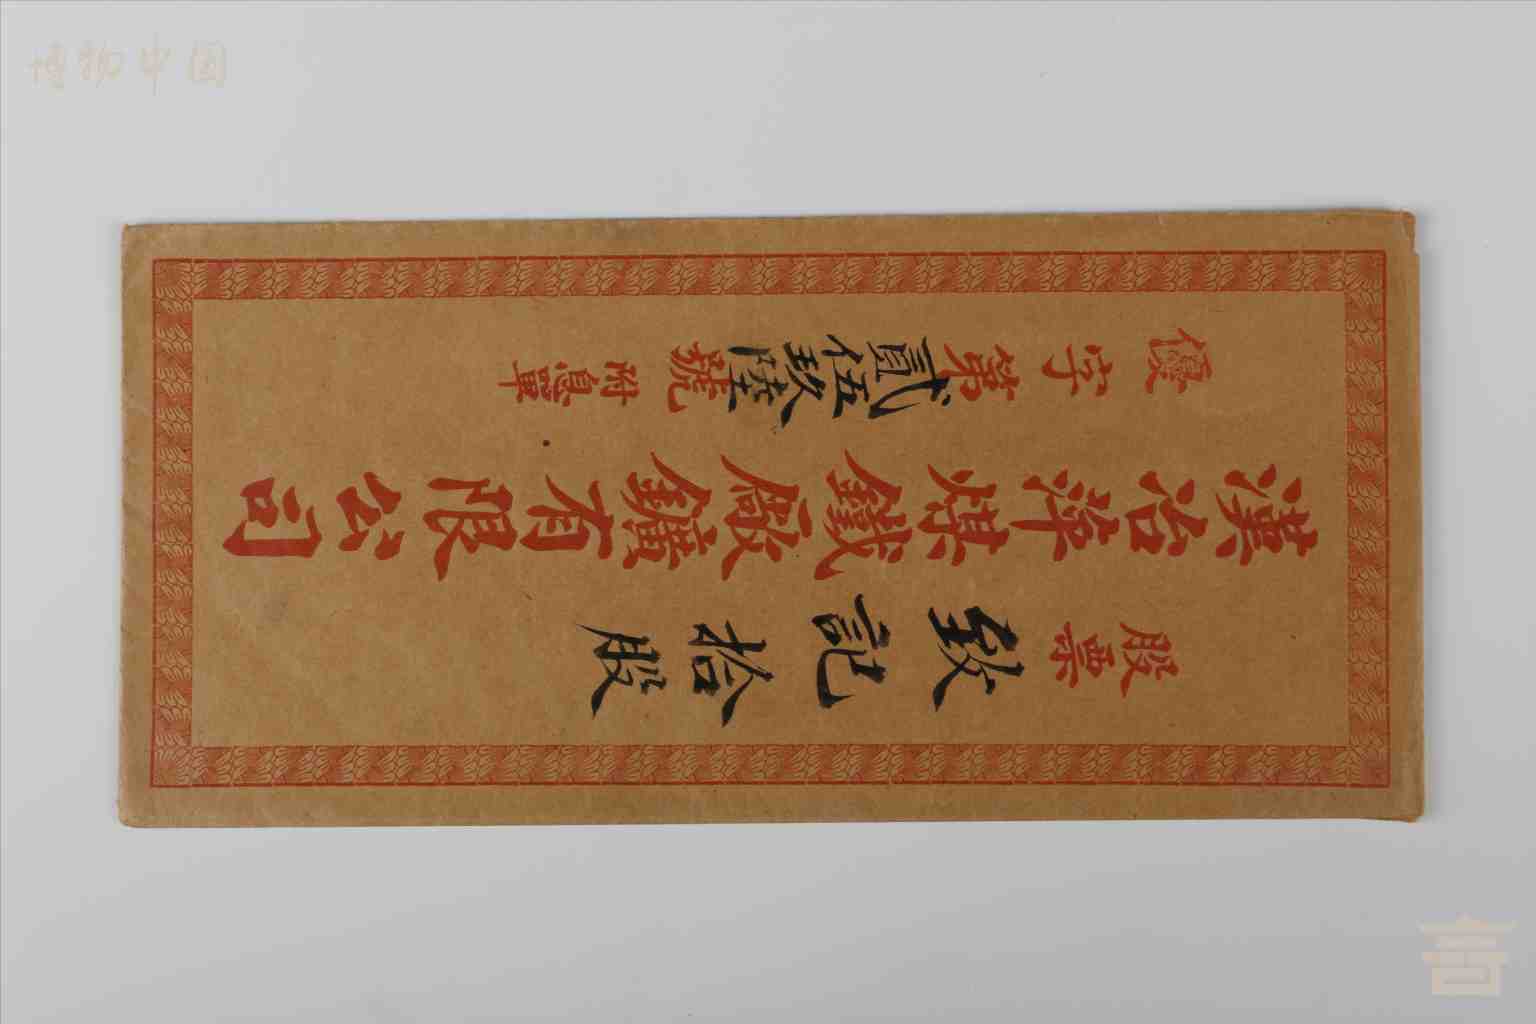 博物中国
股票 致記 拾股
漢冶萍煤鐵廠鑛有限公司
優字第貳伍玖陸號 附息單